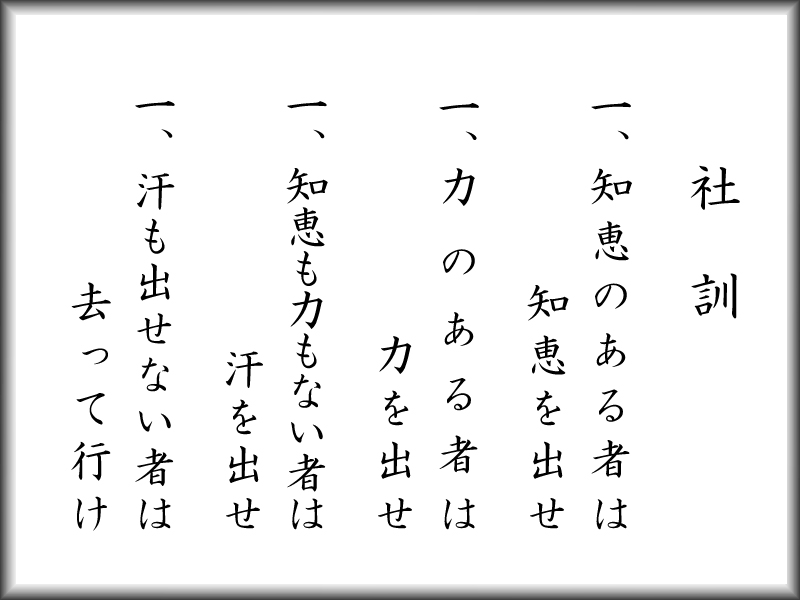 社訓
一、知恵のある者は
知恵を出せ
一、力のある者は
力を出せ
一、知恵も力もない者は
汗を出せ
一、汗も出せない者は
去って行け